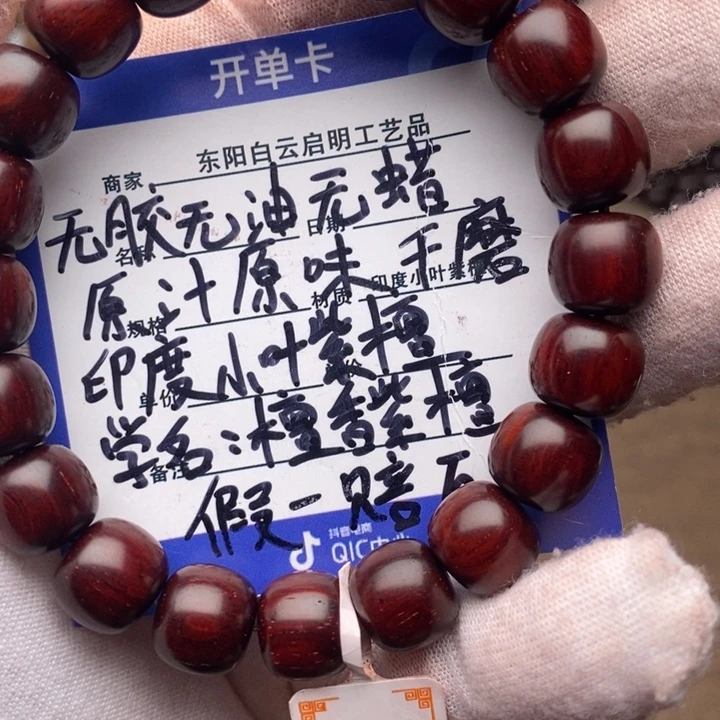 开单卡
商家 东阳白云启明工艺品
无胶无油无蜡
名称 日期
原汁原味手磨
规格 材质 印度小叶紫檀
印度小叶紫檀
单价
学名:檀香紫檀
备注
假一赔
抖音电商
QIC